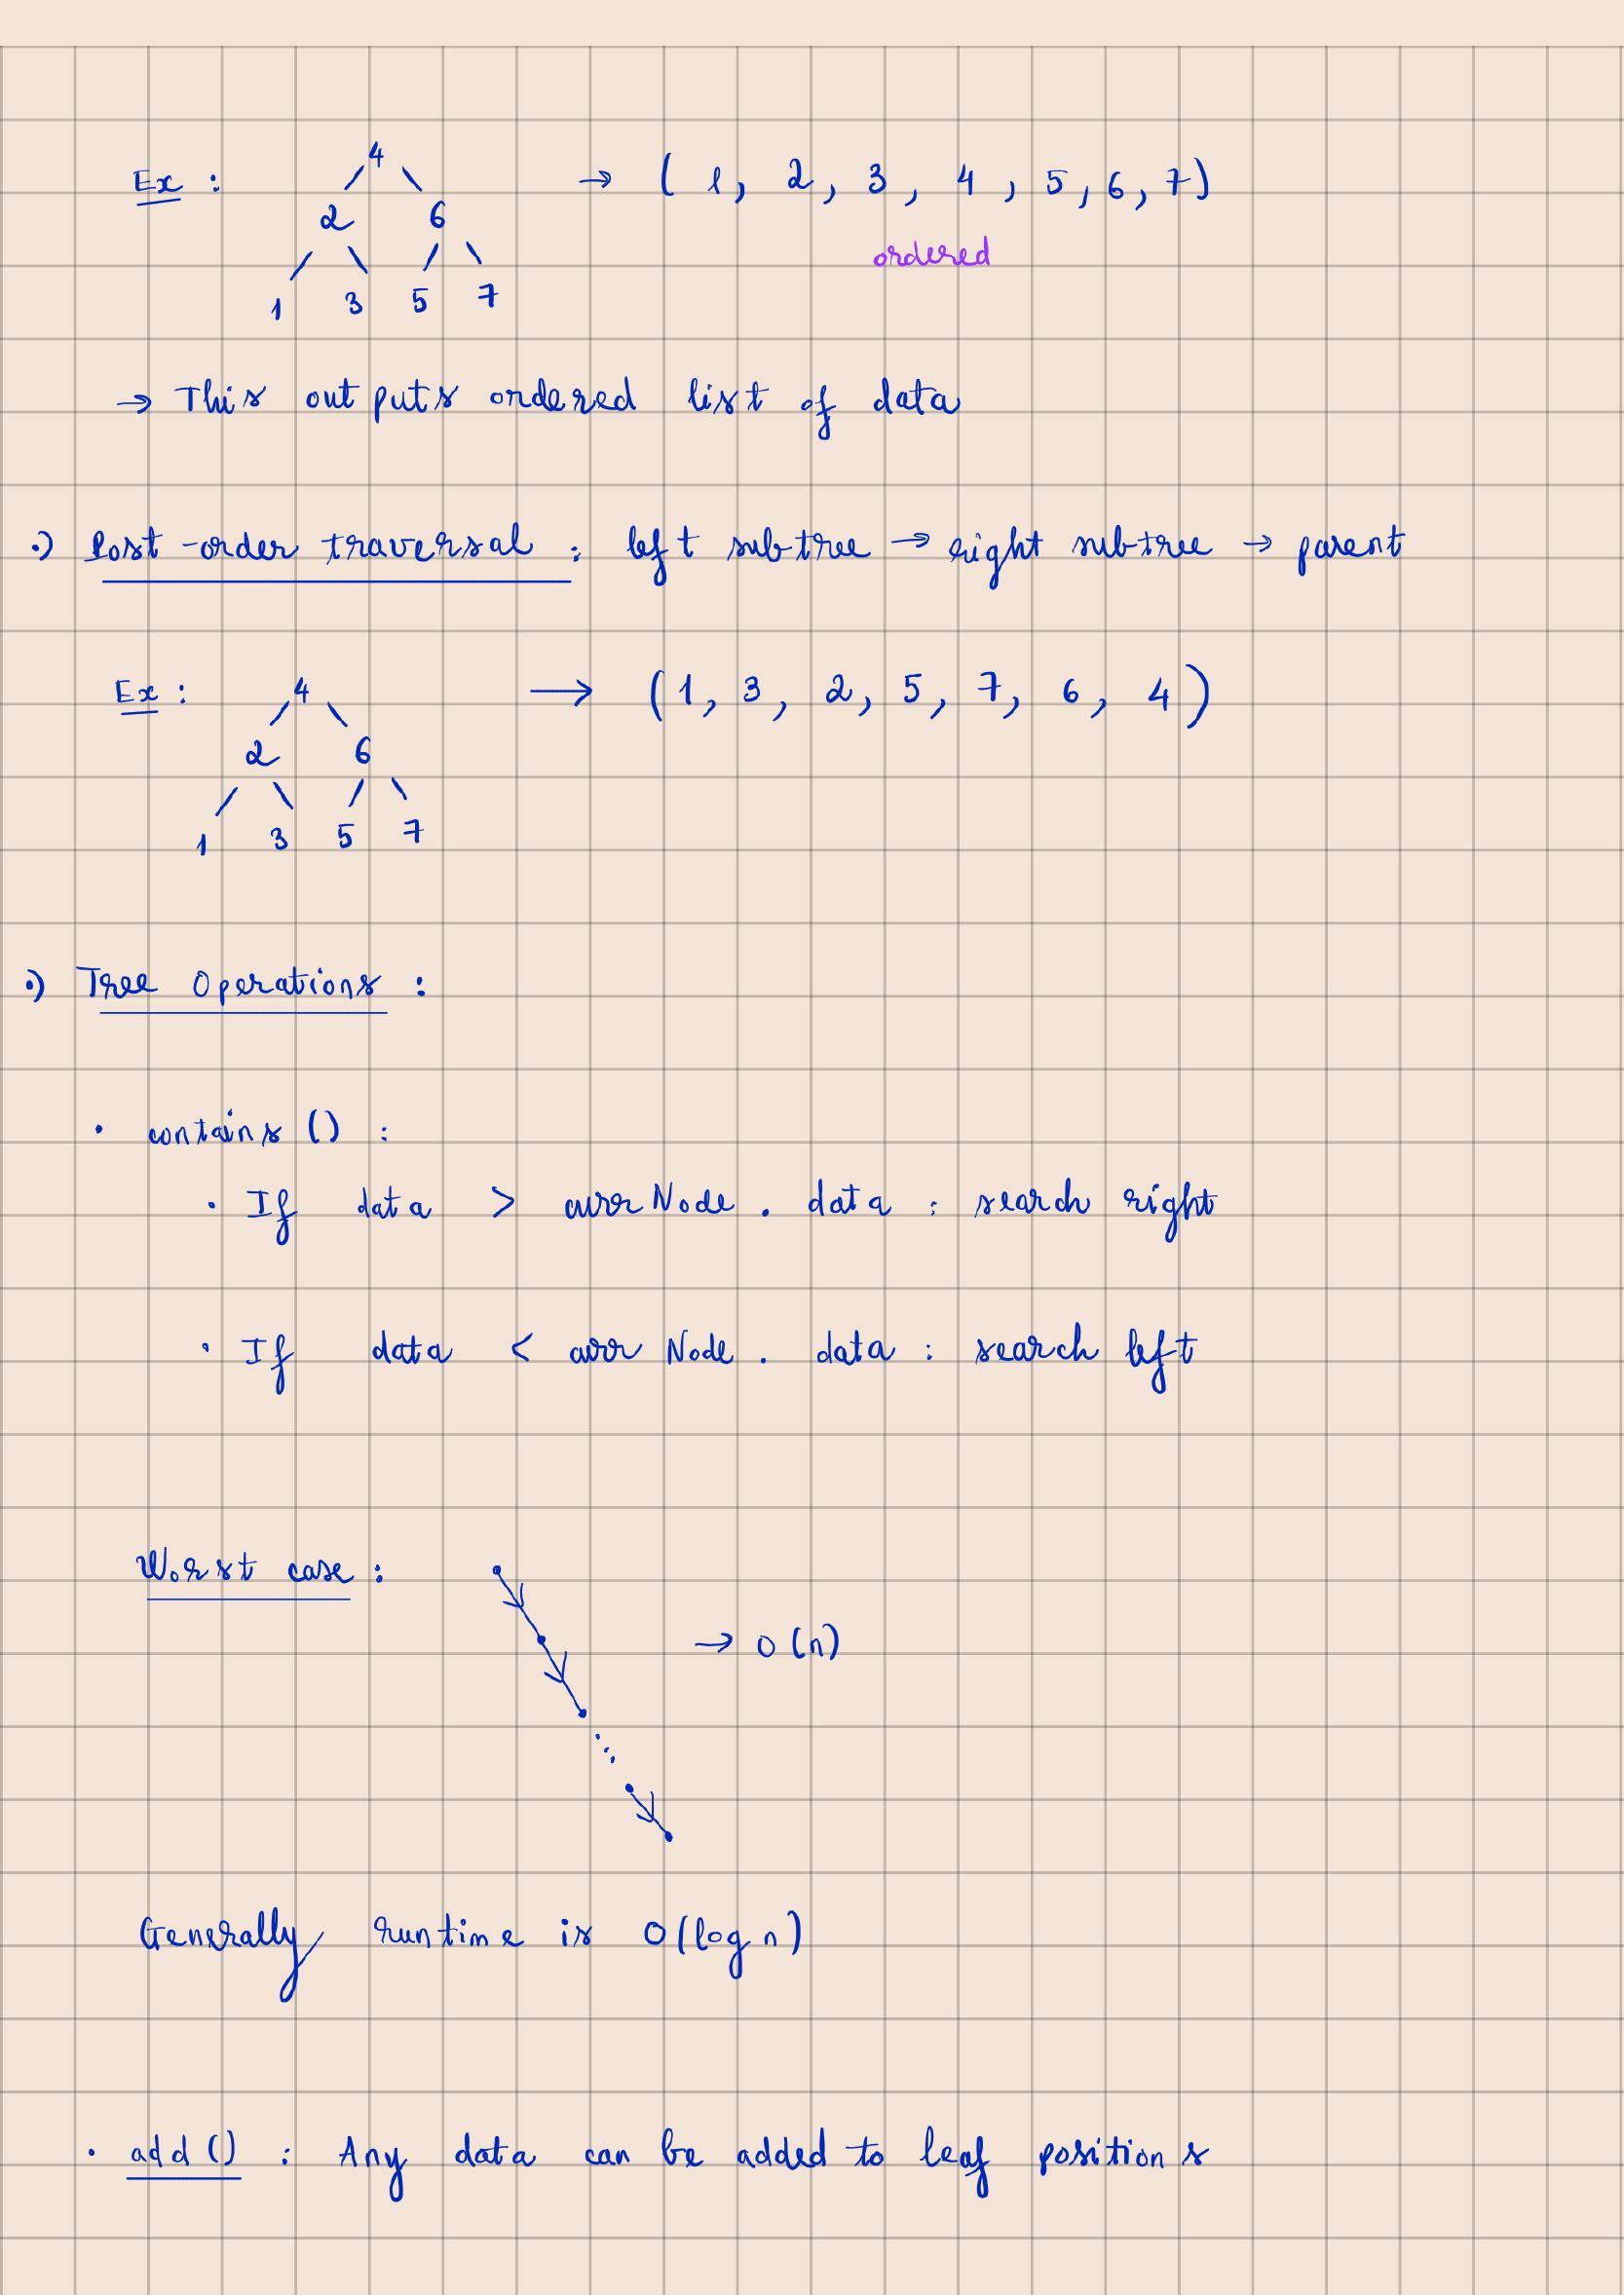 Ex : 4 → ( 1, 2, 3, 4, 5, 6, 7)
2 6
ordered
1 3 5 7
→ This outputs ordered list of data
•) Post-order traversal : left subtree → right subtree → parent
Ex : 4 → (1, 3, 2, 5, 7, 6, 4)
2 6
1 3 5 7
•) Tree Operations :
• contains () :
• If data > currNode . data : search right
• If data < curr Node . data : search left
Worst case :
→ O(n)
Generally runtime is O(log n)
• add () : Any data can be added to leaf positions